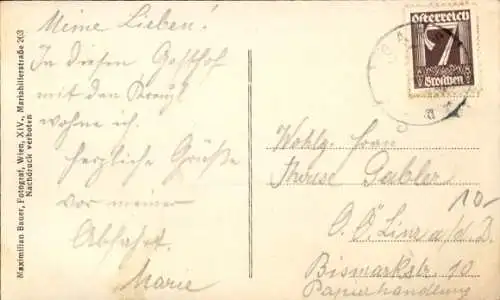 Meine Lieben!
In diesen Gasthof
mit den Kreuz
wohne ich.
herzliche Grüße
vor meiner
Abfahrt.
Marie
Maximilian Bauer, Fotograf, Wien, XIV., Mariahilferstraße 203
Nachdruck verboten
österreich
7
Groschen
Wohlg. Frau
Gubler
10-
O.Ö. Linz a/d. D.
Bismarkstr. 10
Papierhandlung